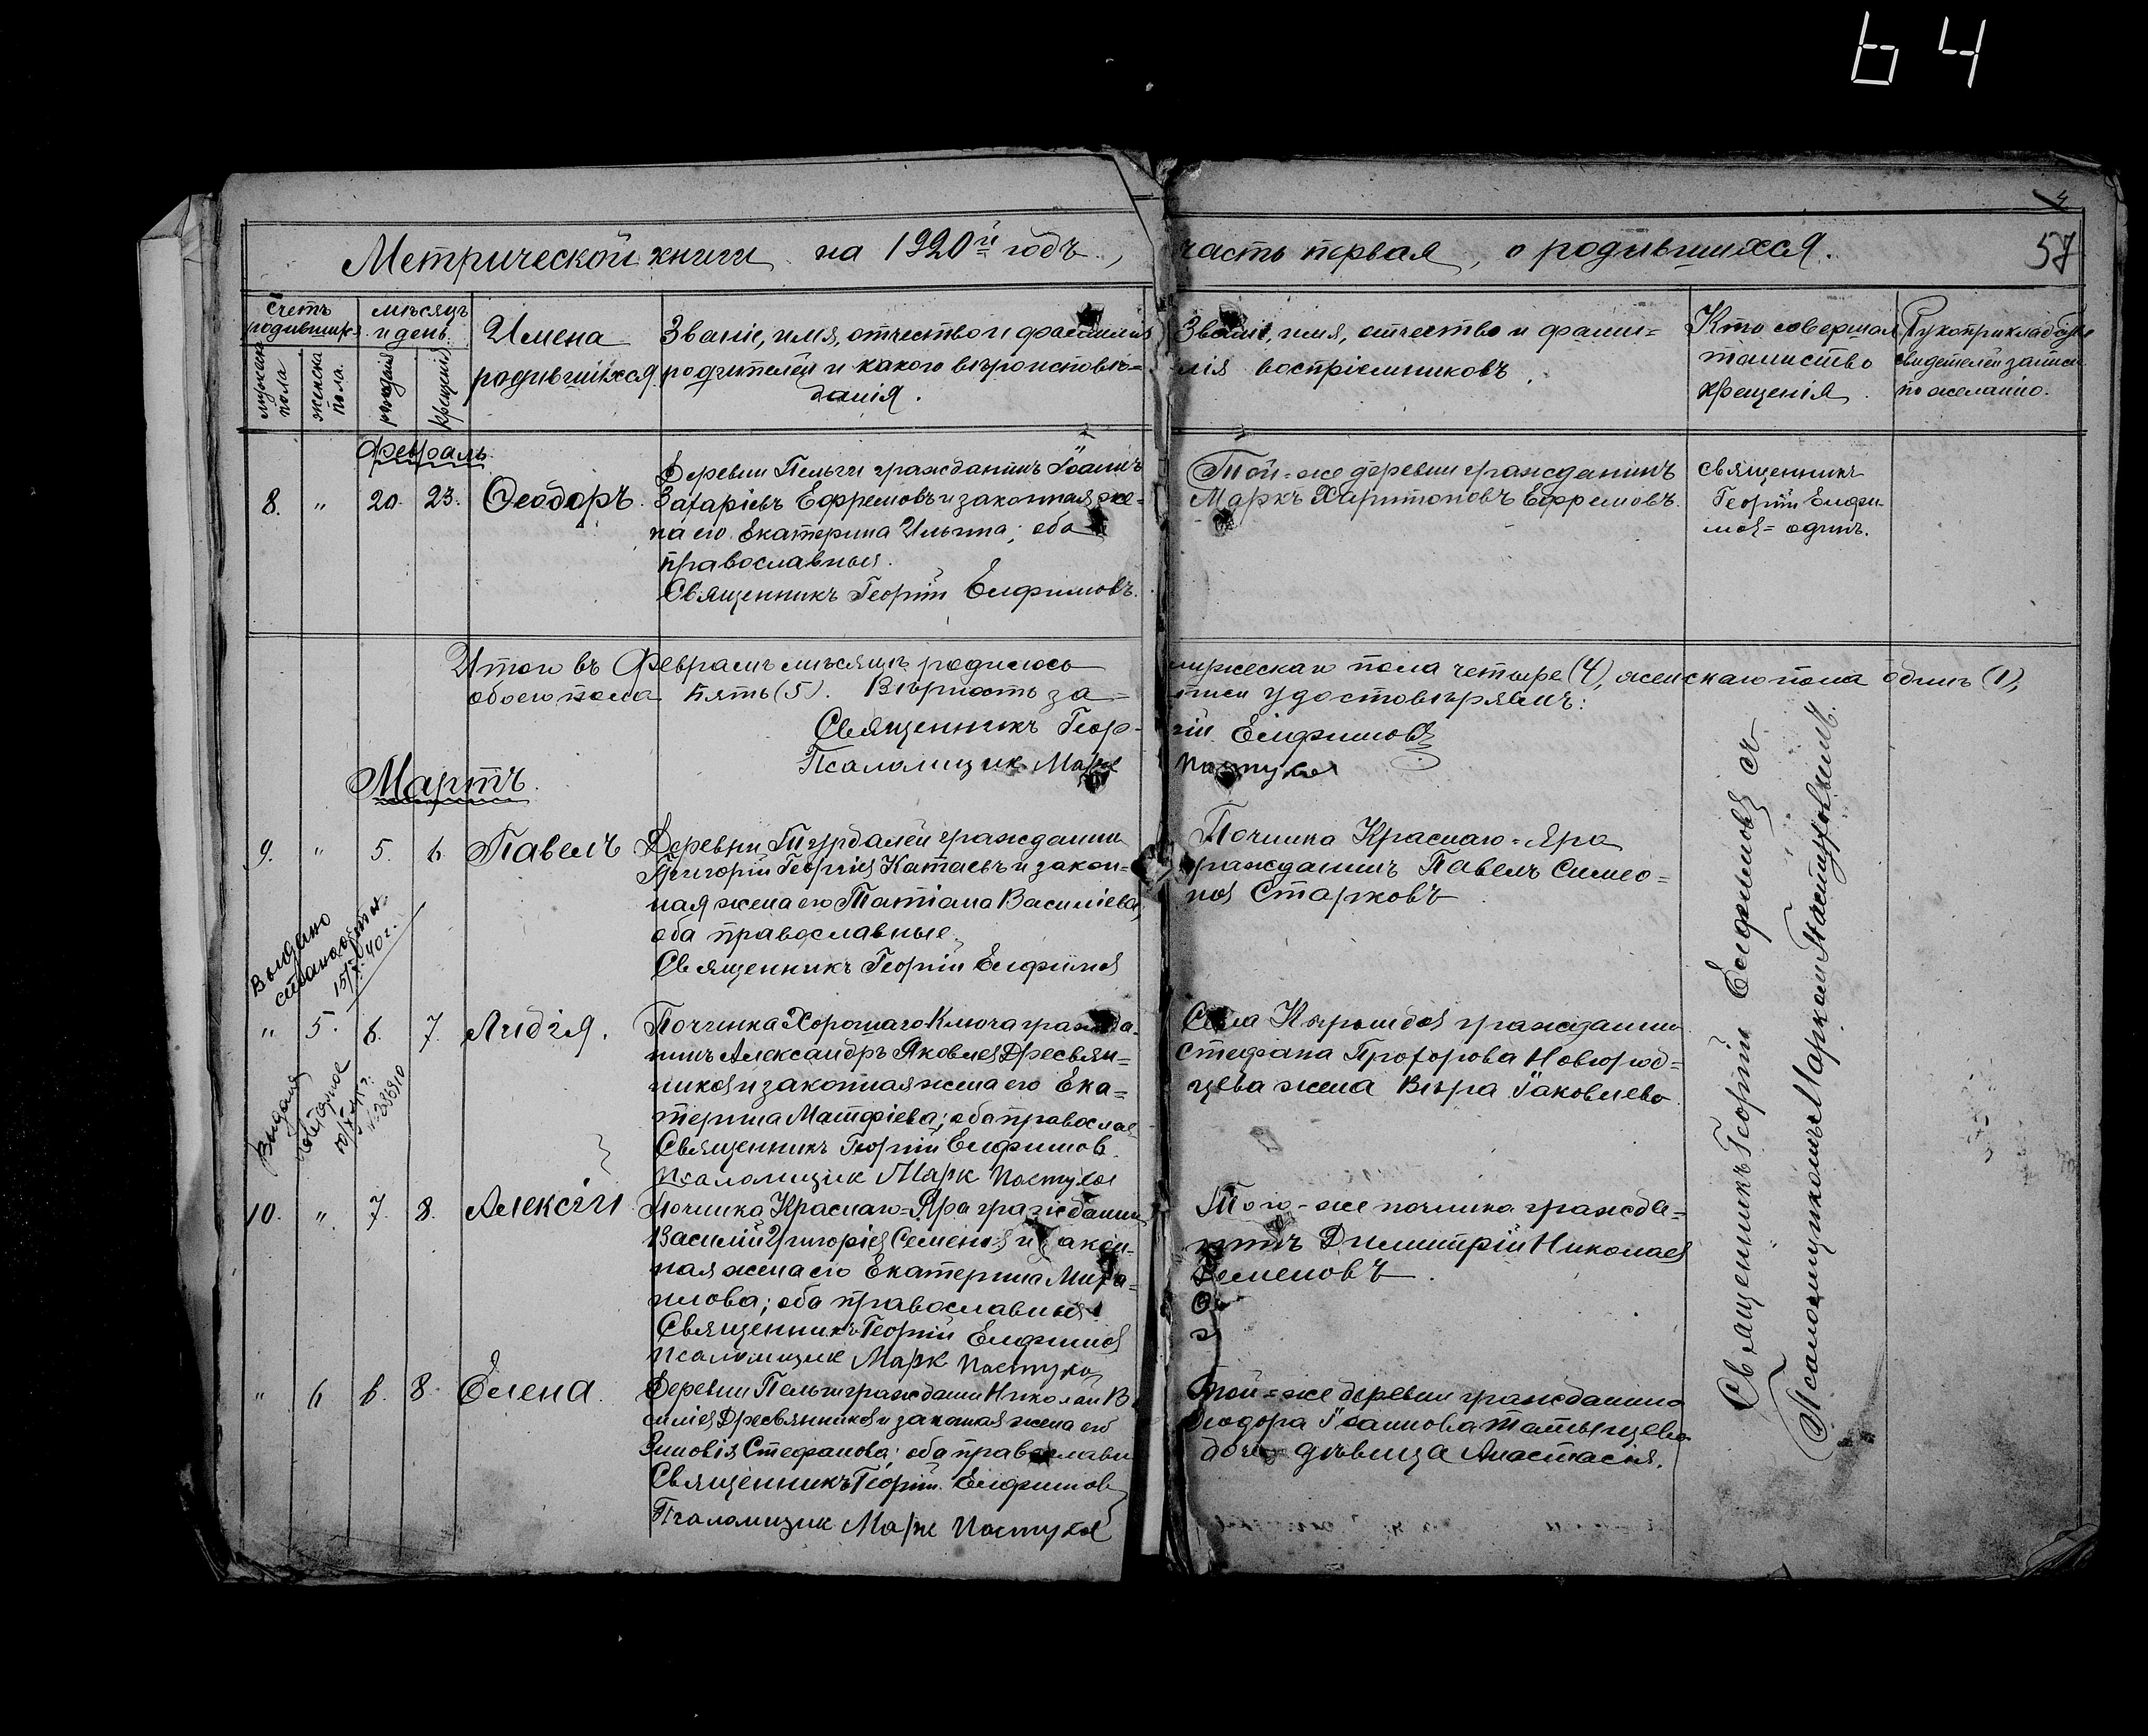 64
Метрической книги на 1920й годъ,
часть первая, о родившихся.
57
Счетъ родившихся
мужска пола
женска пола.
мѣсяцъ и день.
рожденія
крещенія
Имена
родившихся
Званіе, имя, отчество и фамилія
родителей и какого вѣроисповѣ=
данія.
Званіе, имя, отчество и фами=
лія воспріемниковъ
Кто совершал
таинство
крещенія
Рукоприкладство
свидетелей записи
по желанію.
Февраль
8. " 20. 23. Ѳеодоръ.
Деревни Пельги гражданинъ Іоаннъ
Захаріевъ Ефремовъ и законная же=
на его Екатерина Ильина; оба
православныя.
Священникъ Георгій Елфимовъ.
Той=же деревни гражданинъ
Маркъ Харитоновъ Ефремовъ.
священникъ
Георгій Елфи-
мов= одинъ.
Итого въ Февралѣ мѣсяцѣ родилось
мужескаго пола четыре (4), женскаго пола одинъ (1),
обоего пола пять (5). Вѣрность за=
писи удостовѣряемъ:
Священникъ Геор-
гій Елфимовъ
Псаломщик Марк
Пастухов
Мартъ.
9. " 5. 6. Павелъ
Деревни Турдалей гражданин
Григорій Георгіев Катаевъ и закон=
ная жена его Татіана Василіева,
оба православные.
Священникъ Георгій Елфимов
Починка Краснаго=Яра
гражданинъ Павелъ Симео=
нов Старковъ
Выдано
15/X 40 г.
" 5. 6. 7. Лидія.
Починка Хорошаго Ключа гражда-
нинъ Александръ Яковлев Дресвян=
ников и законная жена его Ека=
терина Матфіева; оба правосла
Священникъ Георгій Елфимов
Псаломщик Марк Пастухов
Села Кыршбов гражданина
Стефана Прохорова Новгород=
цева жена Вѣра Іаковлева
Выдано
повторное
10. " 7. 8. Алексій
Починка Краснаго=Яра гражданин
Василій Григоріев Семенов и закон=
ная жена его Екатерина Миха=
илова; оба православныя
Священникъ Георгій Елфимов
псаломщик Марк Пастухов
Того-же починка гражда=
нинъ Димитрій Николаев
Семеновъ.
" 6 6. 8. Елена.
Деревни Пельги гражданин Николай Ва
силіев Дресвянников и законная жена его
Зиновія Стефанова; оба православны
Священникъ Георгій Елфимов
Псаломщик Марк Пастухов
Той=же деревни гражданина
Ѳеодора Іоаннова
дочь дѣвица Анастасія.
Священникъ Георгій Елфимовъ съ
Псаломщикомъ Маркомъ Пастуховымъ.